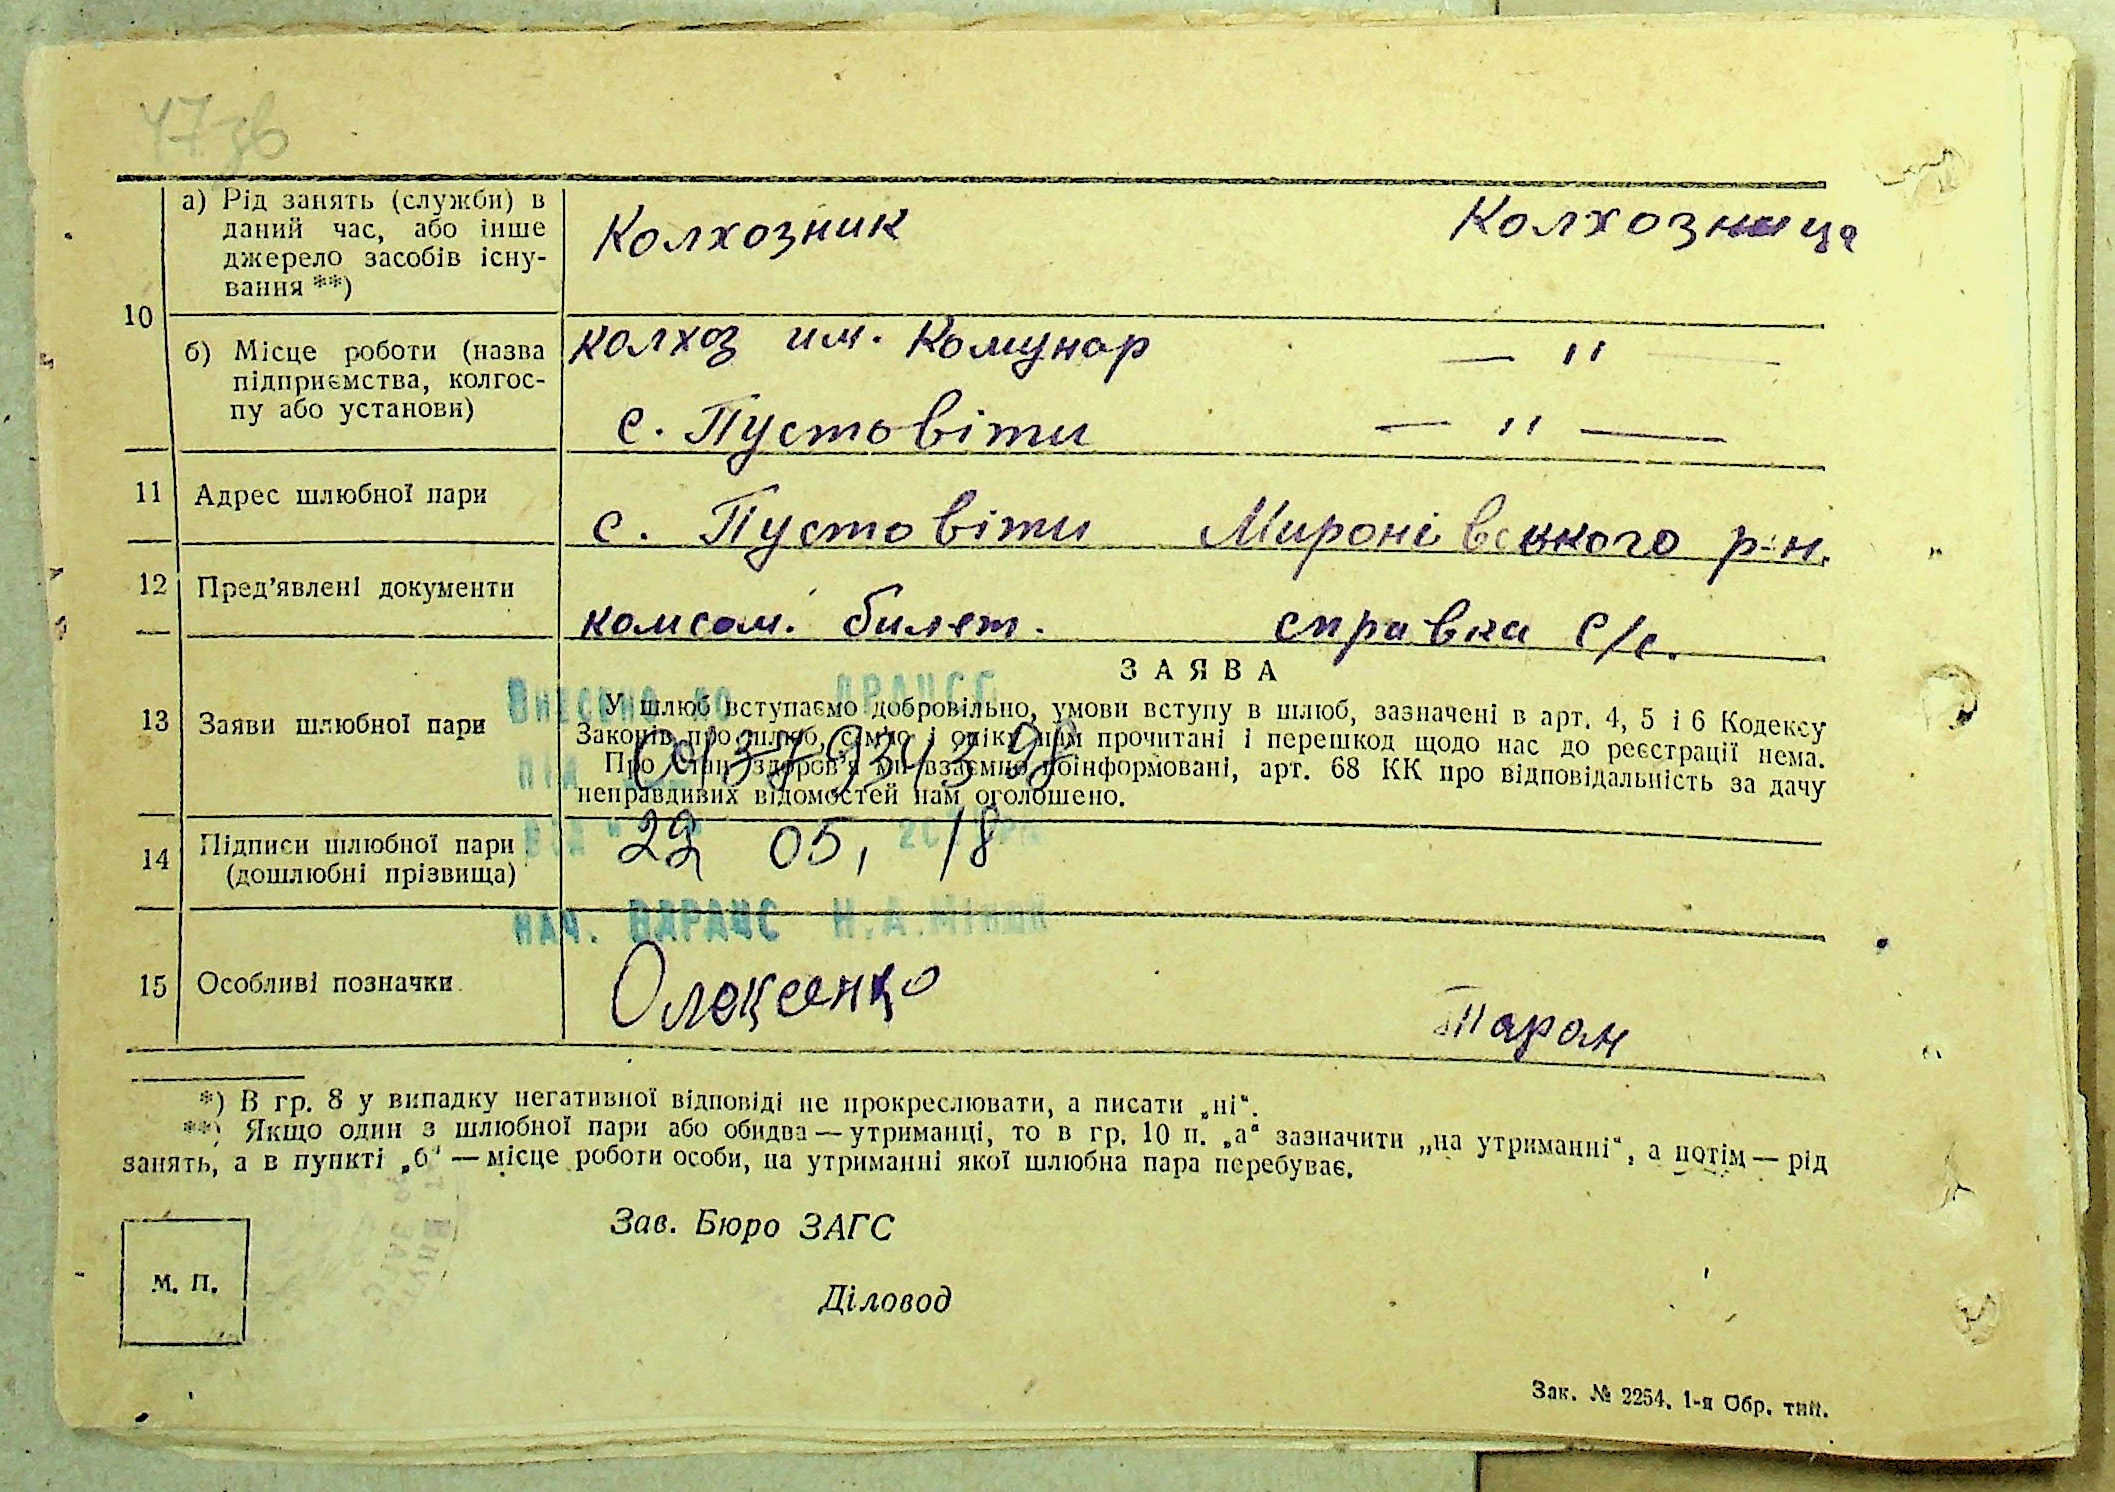 47зв
10
а) Рід занять (служби) в
даний час, або інше
джерело засобів існу-
вання **)
Колхозник Колхозница
б) Місце роботи (назва
підприємства, колгос-
пу або установи)
колхоз им. Комунар — " —
с. Пустовіти — " —
11 Адрес шлюбної пари
с. Пустовіти Миронівського р-н.
12 Пред'явлені документи
комсом. билет. справка с/с.
ЗАЯВА
13 Заяви шлюбної пари
У шлюб вступаємо добровільно, умови вступу в шлюб, зазначені в арт. 4, 5 і 6 Кодексу
Законів про шлюб, сім'ю і опіку нам прочитані і перешкод щодо нас до реєстрації нема.
Про стан здоров'я ми взаємно поінформовані, арт. 68 КК про відповідальність за дачу
неправдивих відомостей нам оголошено.
Внесено до ДРАЦСГ
під
від " " 20 р
22 05, 18
нач. ВДРАЦС Н.А.
14 Підписи шлюбної пари
(дошлюбні прізвища)
15 Особливі позначки
Олексенко Таран
*) В гр. 8 у випадку негативної відповіді не прокреслювати, а писати „ні“.
**) Якщо один з шлюбної пари або обидва — утриманці, то в гр. 10 п. „а“ зазначити „на утриманні“, а потім — рід
занять, а в пункті „б“ — місце роботи особи, на утриманні якої шлюбна пара перебуває.
Зав. Бюро ЗАГС
М. П.
Діловод
Зак. № 2254. 1-я Обр. тип.